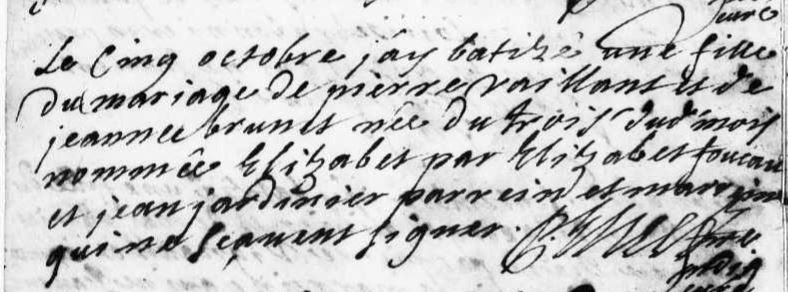 curé
Le Cinq octobre j'ay batizé une fille
du mariage de pierre vaillant et de
jeannee brunet née du trois dud mois
nommée Elizabet par Elizabet foucau
et jean jardinier parrein et marreine
qui ne sçavent signer.